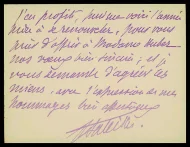 J'en profite, puisque voici l'année
prête à se renouveler, pour vous
prier d'offrir à Madame
nos vœux bien sincères, et je
vous demande d'agréer les
miens, avec l'expression de mes
hommages bien